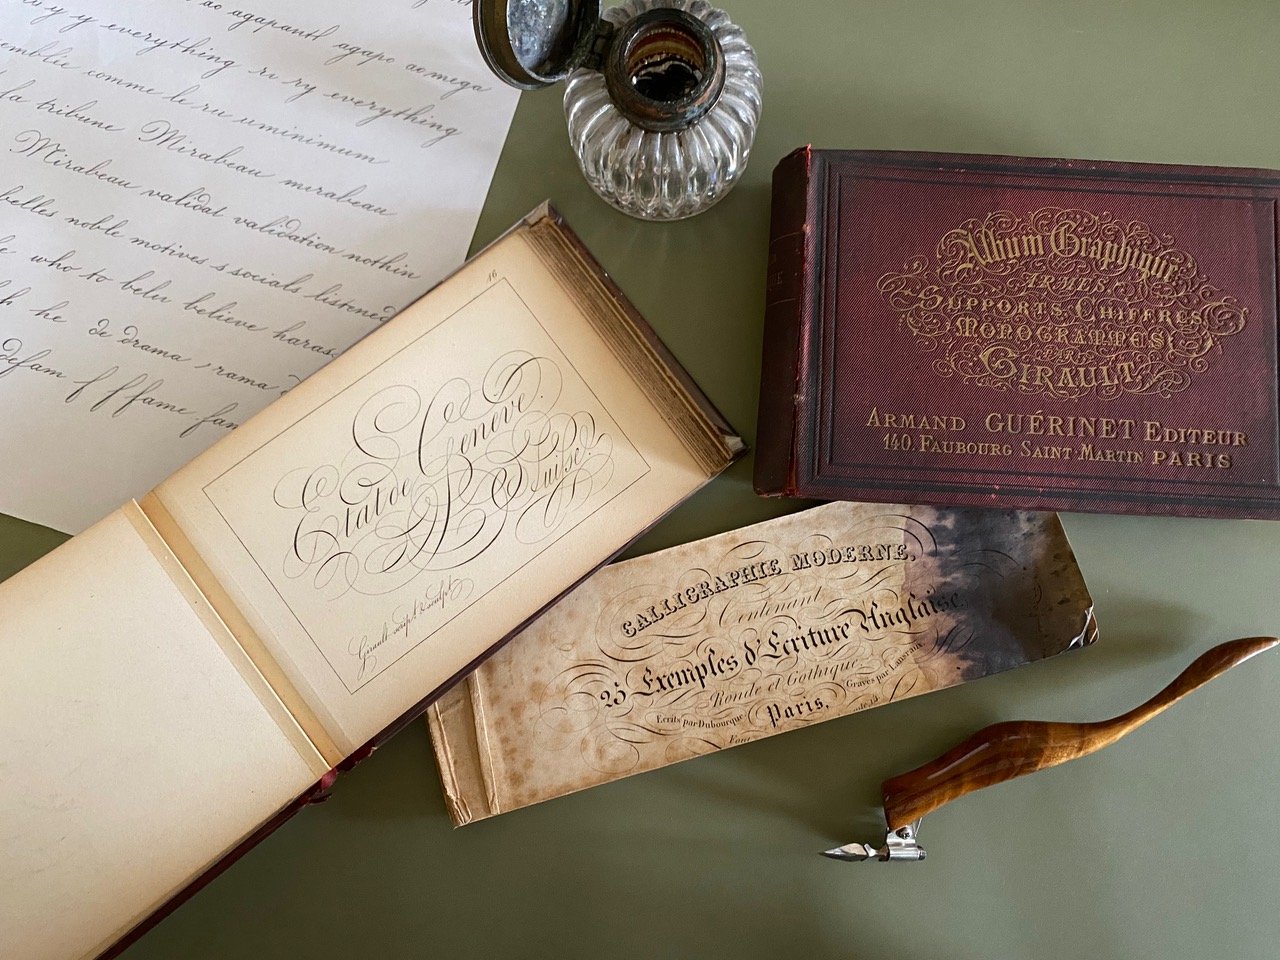 ao agapantl agapo ao omega
y y everything ri ry everything
emblée comme le ru uminimum
fa tribune Mirabeau mirabeau
Mirabeau validat validation nothin
belles noble motives s socials listened
who to beler believe haras
he de drama, rama
defam f f f fame fam
16
Etat de Genève.
Suisse.
Girault script & sculpt
Album Graphique
ARMES,
SUPPORTS, CHIFFRES
MONOGRAMMES
PAR
GIRAULT
ARMAND GUÉRINET EDITEUR
140. FAUBOURG SAINT MARTIN PARIS
CALLIGRAPHIE MODERNE,
Contenant
25 Exemples d'Ecriture Anglaise
Ronde et Gothique
Ecrits par Dubourque Gravés par
Paris,